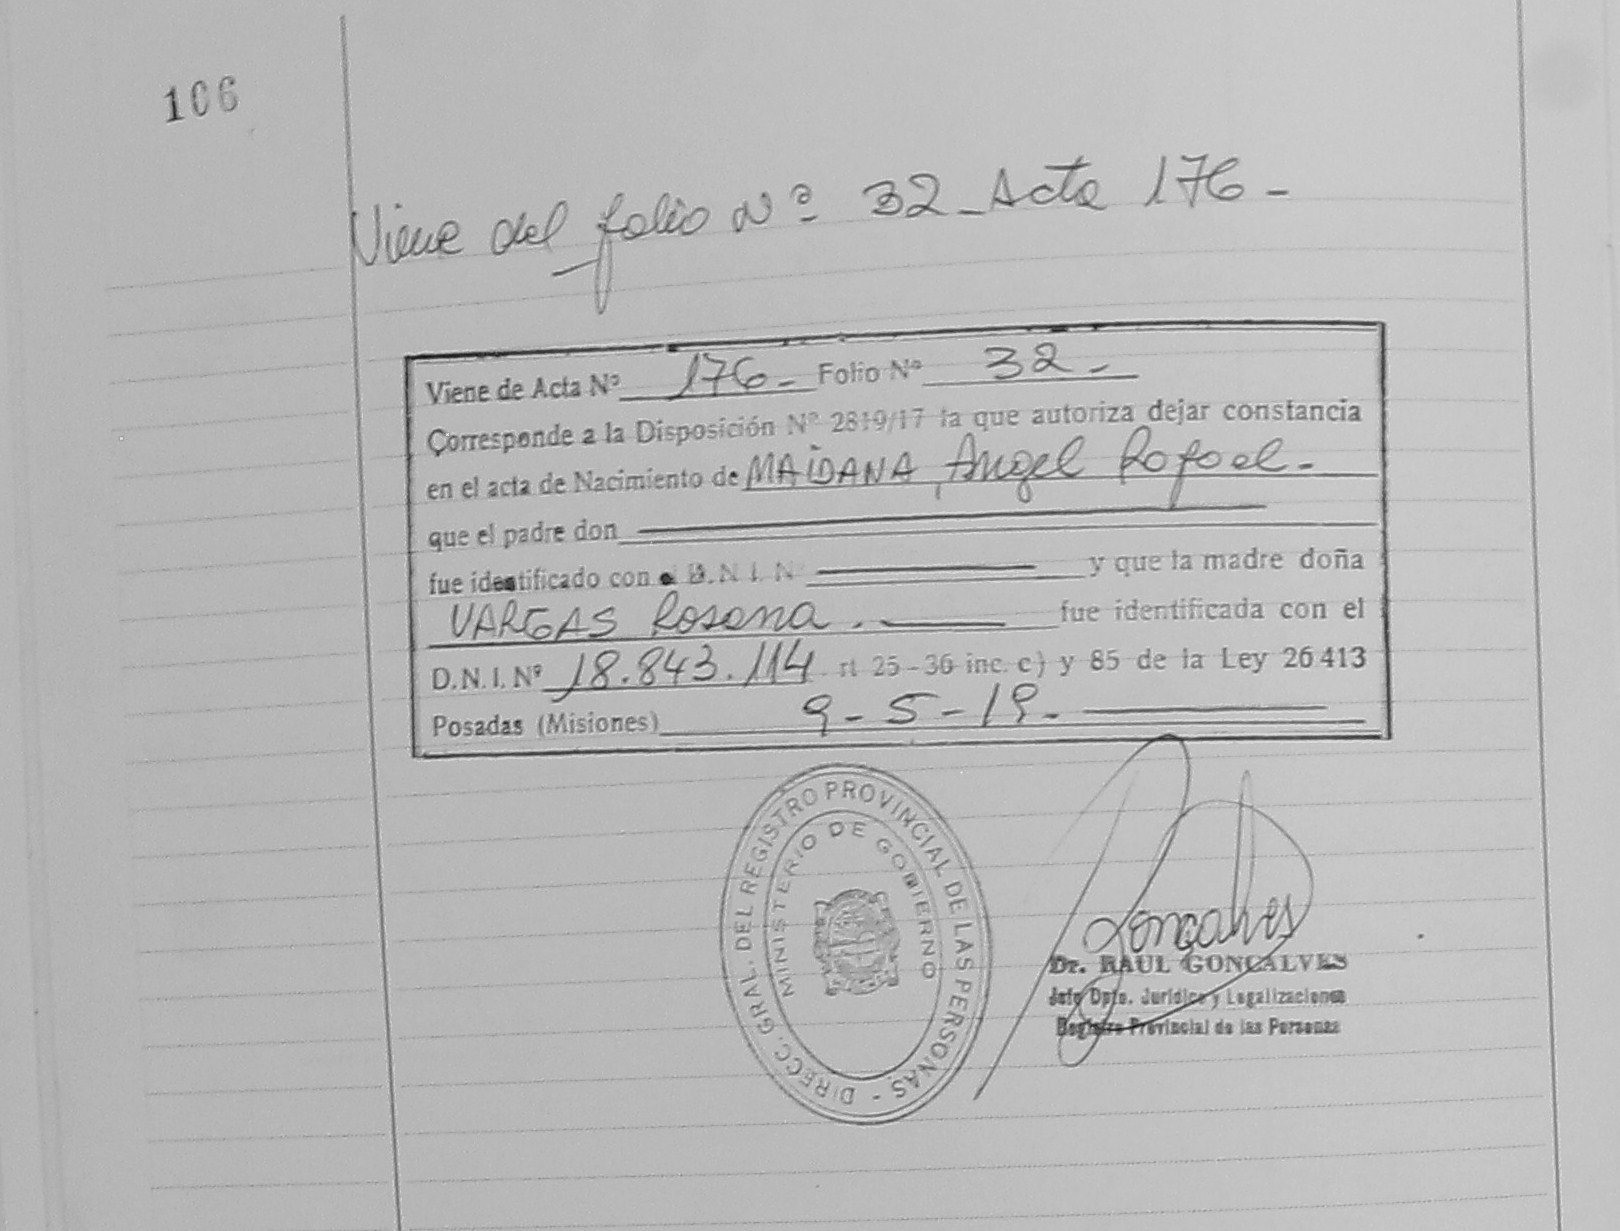 106
Viene del folio Nº 32 - Acta 176 -
Viene de Acta Nº 176 - Folio Nº 32 -
Corresponde a la Disposición Nº 2819/17 la que autoriza dejar constancia
en el acta de Nacimiento de MAIDANA, Angel Rafael -
que el padre don
fue identificado con el D.N.I. Nº y que la madre doña
VARGAS Rosana . fue identificada con el
D.N.I. Nº 18.843.114 rt 25-36 inc. c) y 85 de la Ley 26413
Posadas (Misiones) 9-5-19 -
DIRECC. GRAL. DEL REGISTRO PROVINCIAL DE LAS PERSONAS -
MINISTERIO DE GOBIERNO
Goncalves
Dr. RAUL GONCALVES
Jefe Dpto. Jurídico y Legalizaciones
Registro Provincial de las Personas